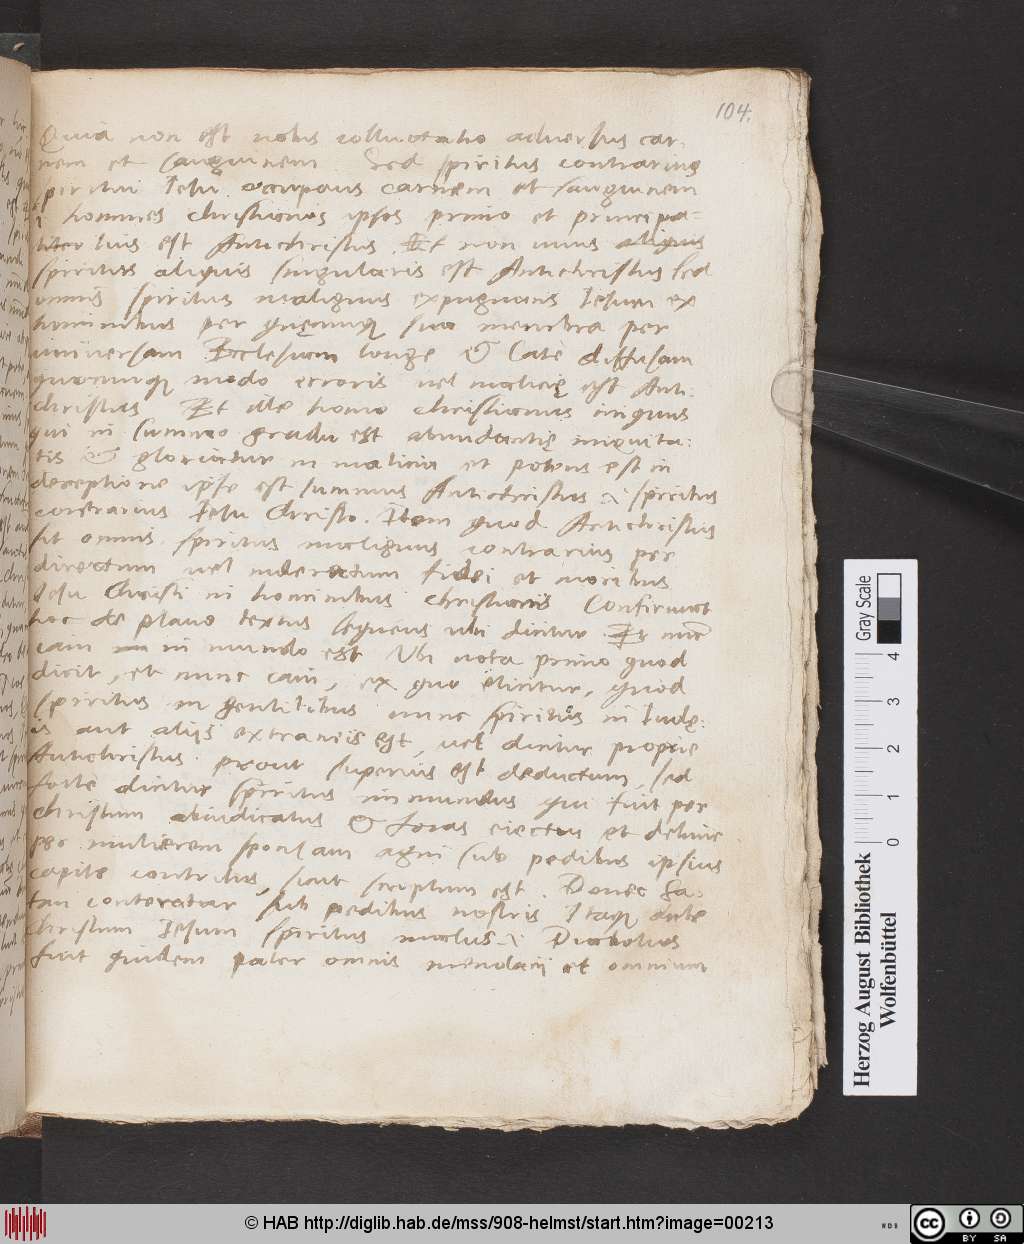 104.
Quia non est nobis colluctatio adversus car:
nem et sanguinem Sed spiritus contrarius
spiritui Iesu occupans carnem et sanguinem
i homines christianos ipsos primo et principa=
liter huis est Antichristus. Et non unus aliquis
spiritus aliquis singularis est Antichristus sed
omnis spiritus malignus expugnans Iesum ex
hominibus per quęcunq sua membra per
universam Ecclesiam longe & late diffusam
quocunq modo erroris vel malicię est Anti:
christus Et ille homo christianus iniquus
qui in summo gradu est abundantię iniquita:
tis & gloriatur in malicia et potens est in
deceptione ipse est summus Antichristus .i. spiritus
contrarius Iesu Christo. Item quod Antichristus
sit omnis spiritus malignus contrarius per
directum vel inderectum fidei et moribus
Iesu Christi in hominibus christianis Confirmat
hoc de plano textus sequens ubi dicitur Et nunc
iam in mundo est Ubi nota primo quod
dicit, et nunc iam, ex quo elicitur, quod
spiritus in gentilibus nunc spiritus in Iudę:
is aut aliis extraneis est, vel dicitur proprie
Antichristus prout superius est deductum, sed
forte dicitur spiritus immundus qui fuit per
Christum abiudicatus & foras eiectus et debuit
per mulierem sponsam agni sub pedibus ipsius
capite contritus, sicut scriptum est. Donec Sa:
tan conteratur sub pedibus nostris Itaq ante
christum Iesum spiritus malus .i. Diabolus
fuit quidem pater omnis mendacii et omnium
Gray Scale
0 1 2 3 4
Herzog August Bibliothek
Wolfenbüttel
© HAB http://diglib.hab.de/mss/908-helmst/start.htm?image=00213
WDB
cc BY SA